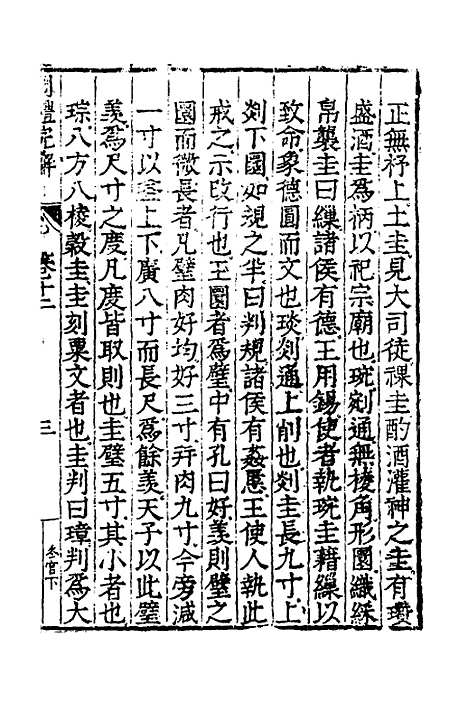 正無杼上土圭見大司徒祼圭酌酒灌神之圭有瓚
盛酒圭爲柄以祀宗廟也琬剡通無稜角形圜纖綵
帛襲圭曰繅諸侯有德王用錫使者執琬圭藉繅以
致命象德圓而文也琰剡通上削也剡圭長九寸上
剡下圜如規之半曰判規諸侯有姦慝王使人執此
戒之示改行也玉圜者爲璧中有孔曰好羨則璧之
圜而微長者凡璧肉好均好三寸幷肉九寸今旁減
一寸以益上下廣八寸而長尺爲餘羨天子以此璧
羨爲尺寸之度凡度皆取則也圭璧五寸其小者也
琮八方八棱穀圭圭刻粟文者也圭判曰璋判爲大
周禮完解
卷十二
三
冬官下